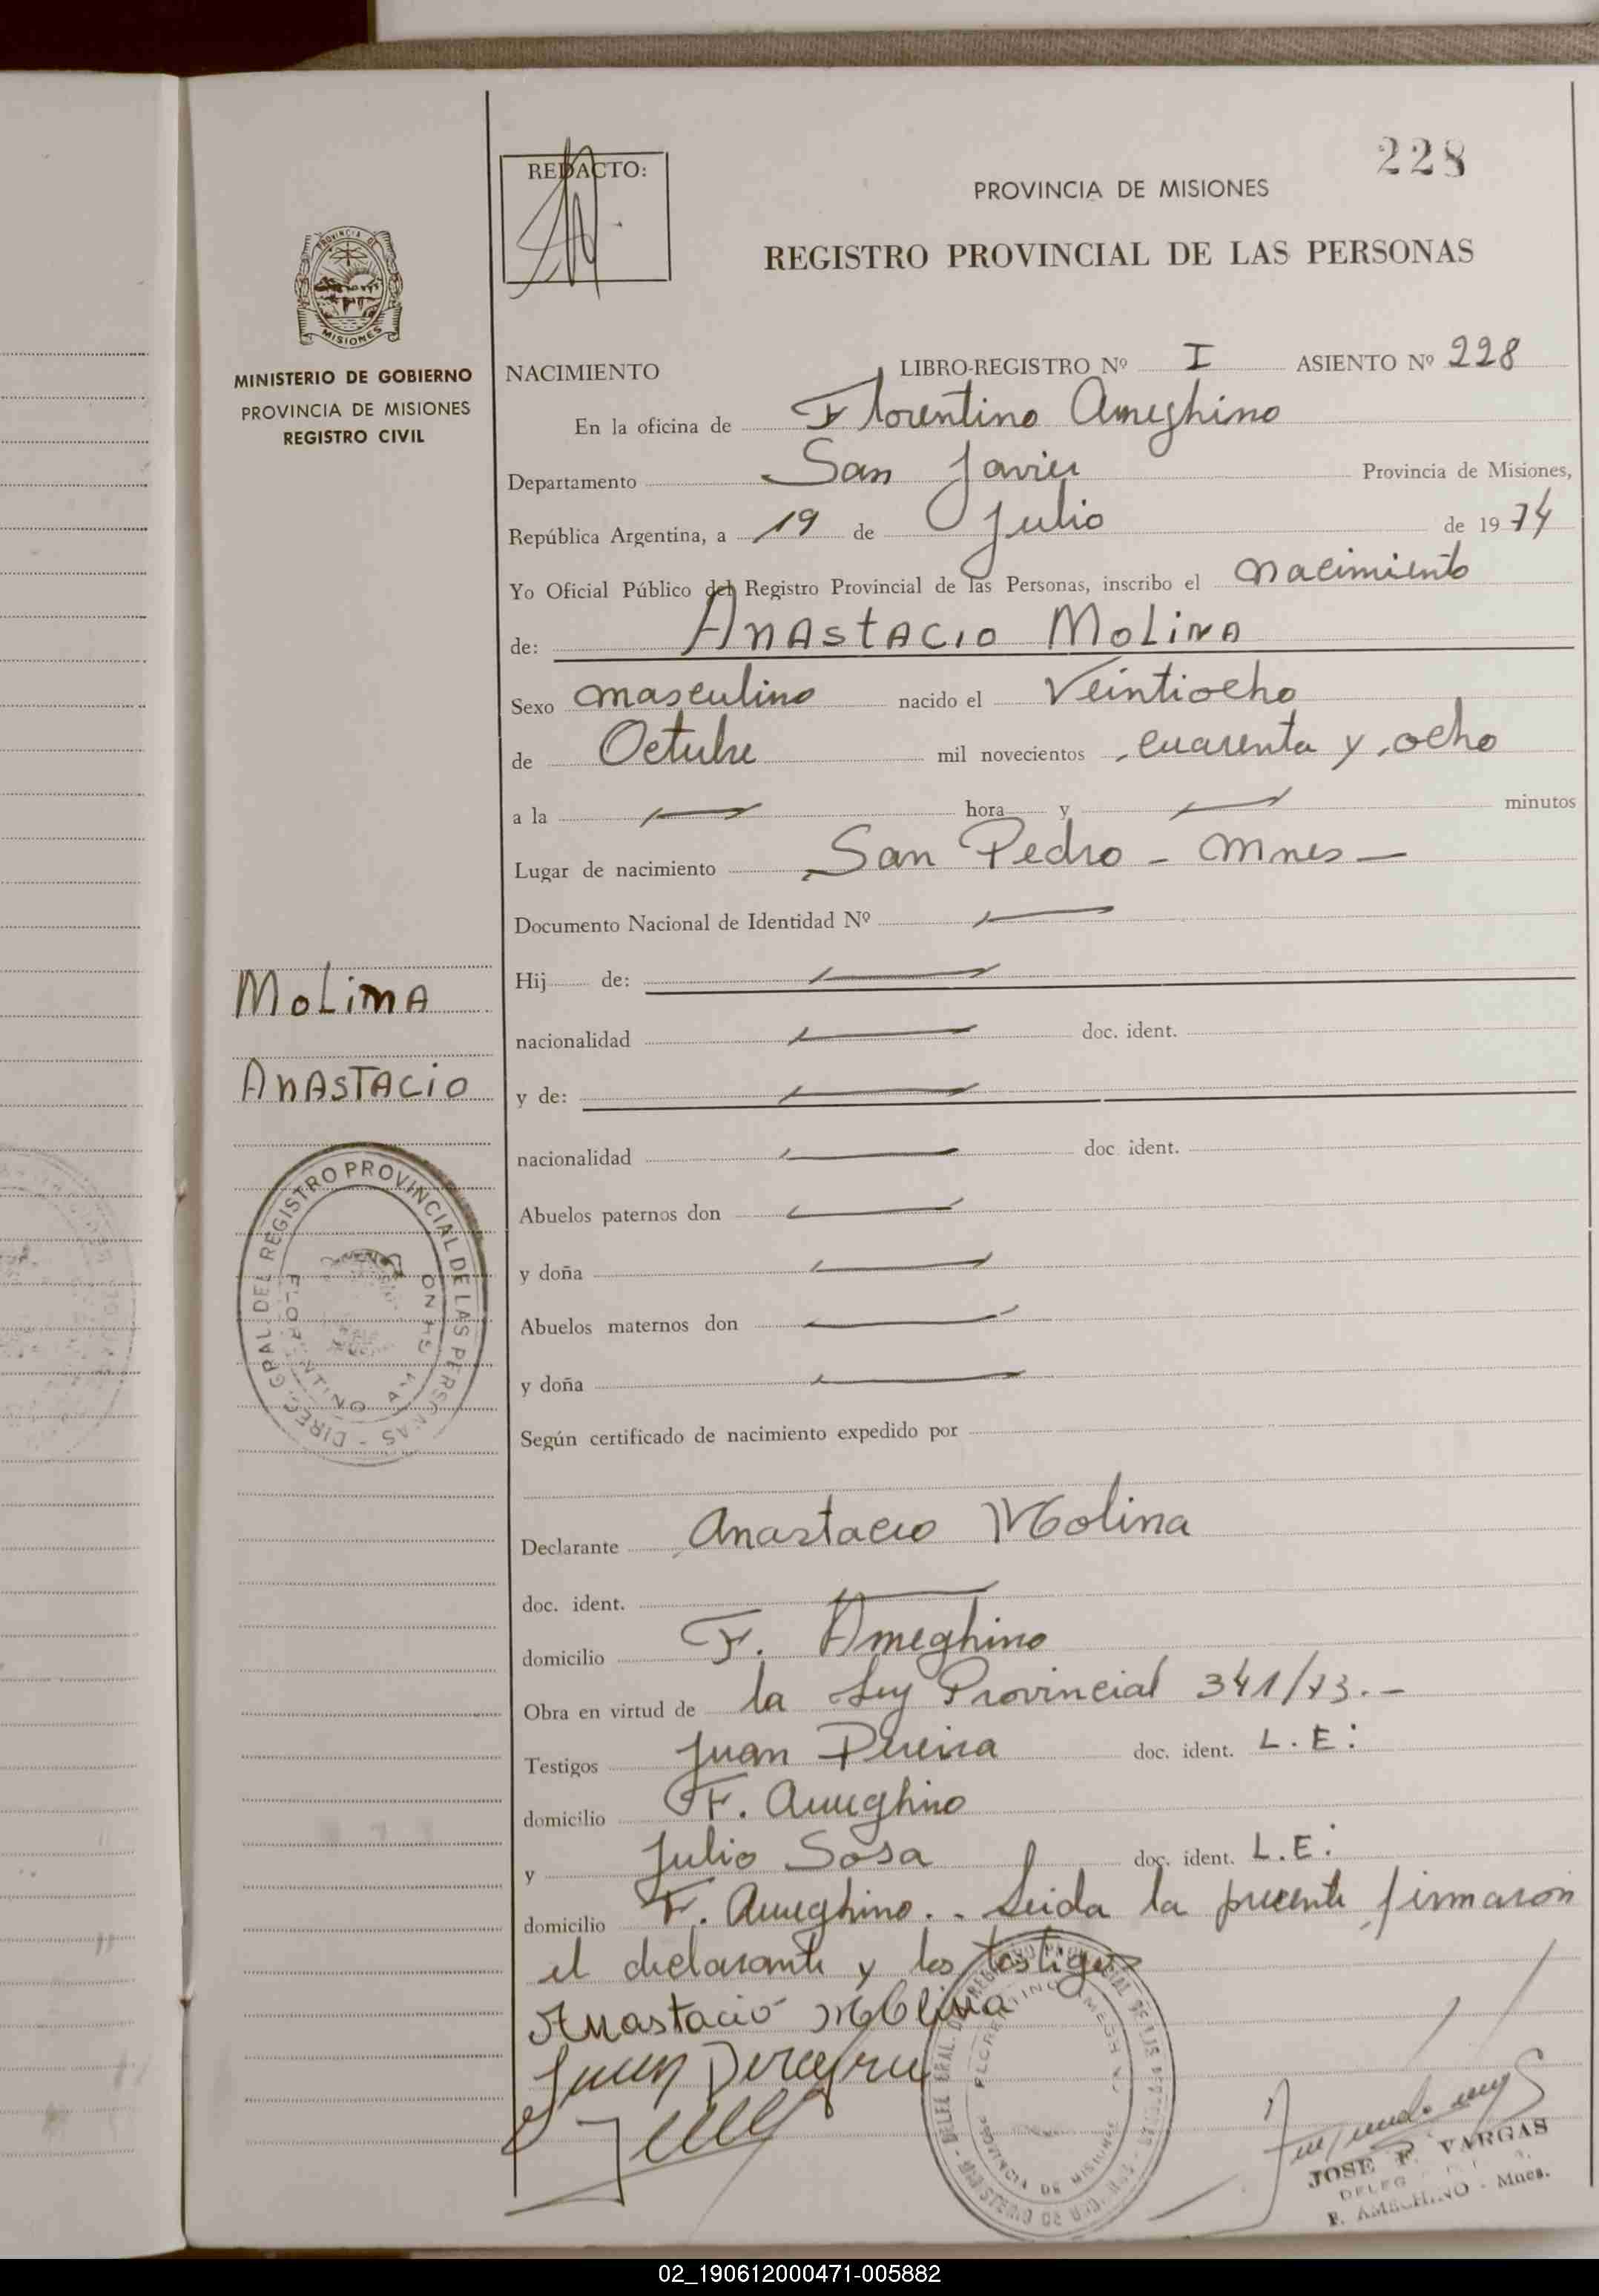 228
REDACTO:
PROVINCIA DE MISIONES
REGISTRO PROVINCIAL DE LAS PERSONAS
PROVINCIA DE
MISIONES
MINISTERIO DE GOBIERNO
PROVINCIA DE MISIONES
REGISTRO CIVIL
NACIMIENTO LIBRO-REGISTRO Nº I ASIENTO Nº 228
En la oficina de Florentino Ameghino
Departamento San Javier Provincia de Misiones,
República Argentina, a 19 de Julio de 1974
Yo Oficial Público del Registro Provincial de las Personas, inscribo el nacimiento
de: Anastacio Molina
Sexo masculino nacido el Veintiocho
de Octubre mil novecientos cuarenta y ocho
a la — hora y — minutos
Lugar de nacimiento San Pedro - Mnes —
Documento Nacional de Identidad Nº —
Hij de: —
nacionalidad — doc. ident.
y de: —
nacionalidad — doc ident.
Abuelos paternos don —
y doña —
Abuelos maternos don —
y doña —
Según certificado de nacimiento expedido por
Declarante Anastacio Molina
doc. ident. —
domicilio F. Ameghino
Obra en virtud de la Ley Provincial 341/73.-
Testigos Juan Pereira doc. ident. L.E:
domicilio F. Ameghino
y Julio Sosa doc. ident. L.E:
domicilio F. Ameghino.- Leida la presente firmaron
el declarante y los testigos
Anastacio Molina
MOLINA
ANASTACIO
DIREC. GRAL. DEL REGISTRO PROVINCIAL DE LAS PERSONAS -
FLORENTINO AMEGHINO
FLORENTINO AMEGHINO
PROVINCIA DE MISIONES
JOSE F. VARGAS
F. AMEGHINO - Mnes.
02_190612000471-005882